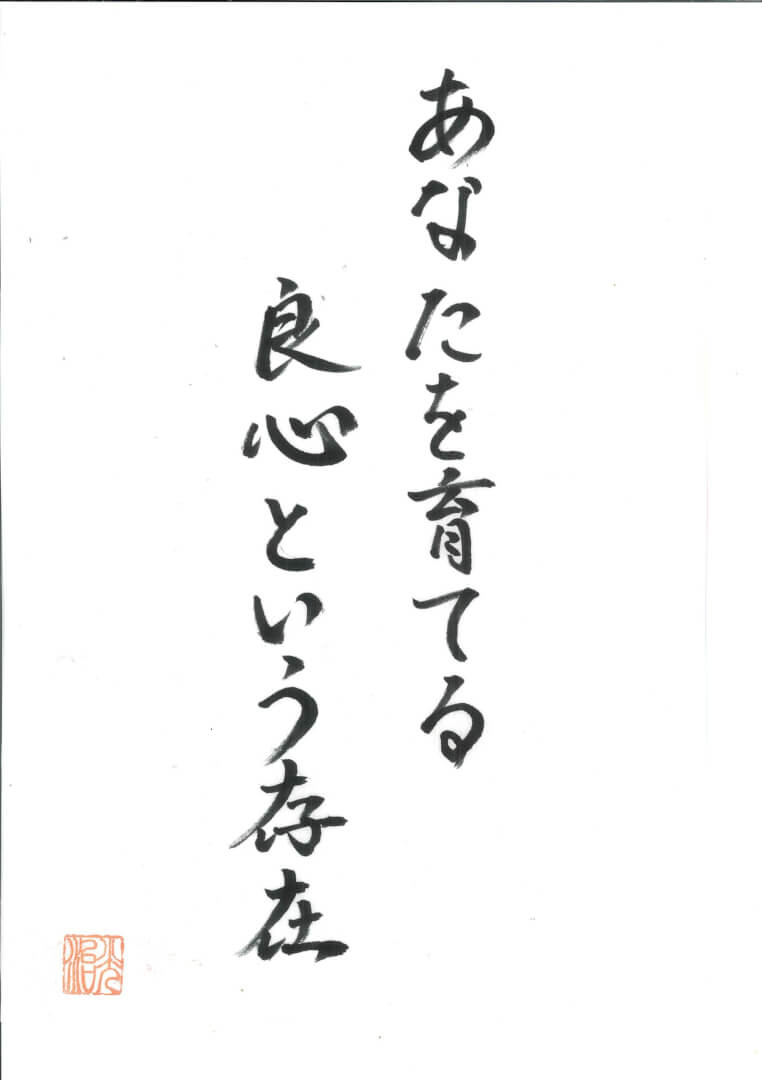 あなたを育てる
良心という存在